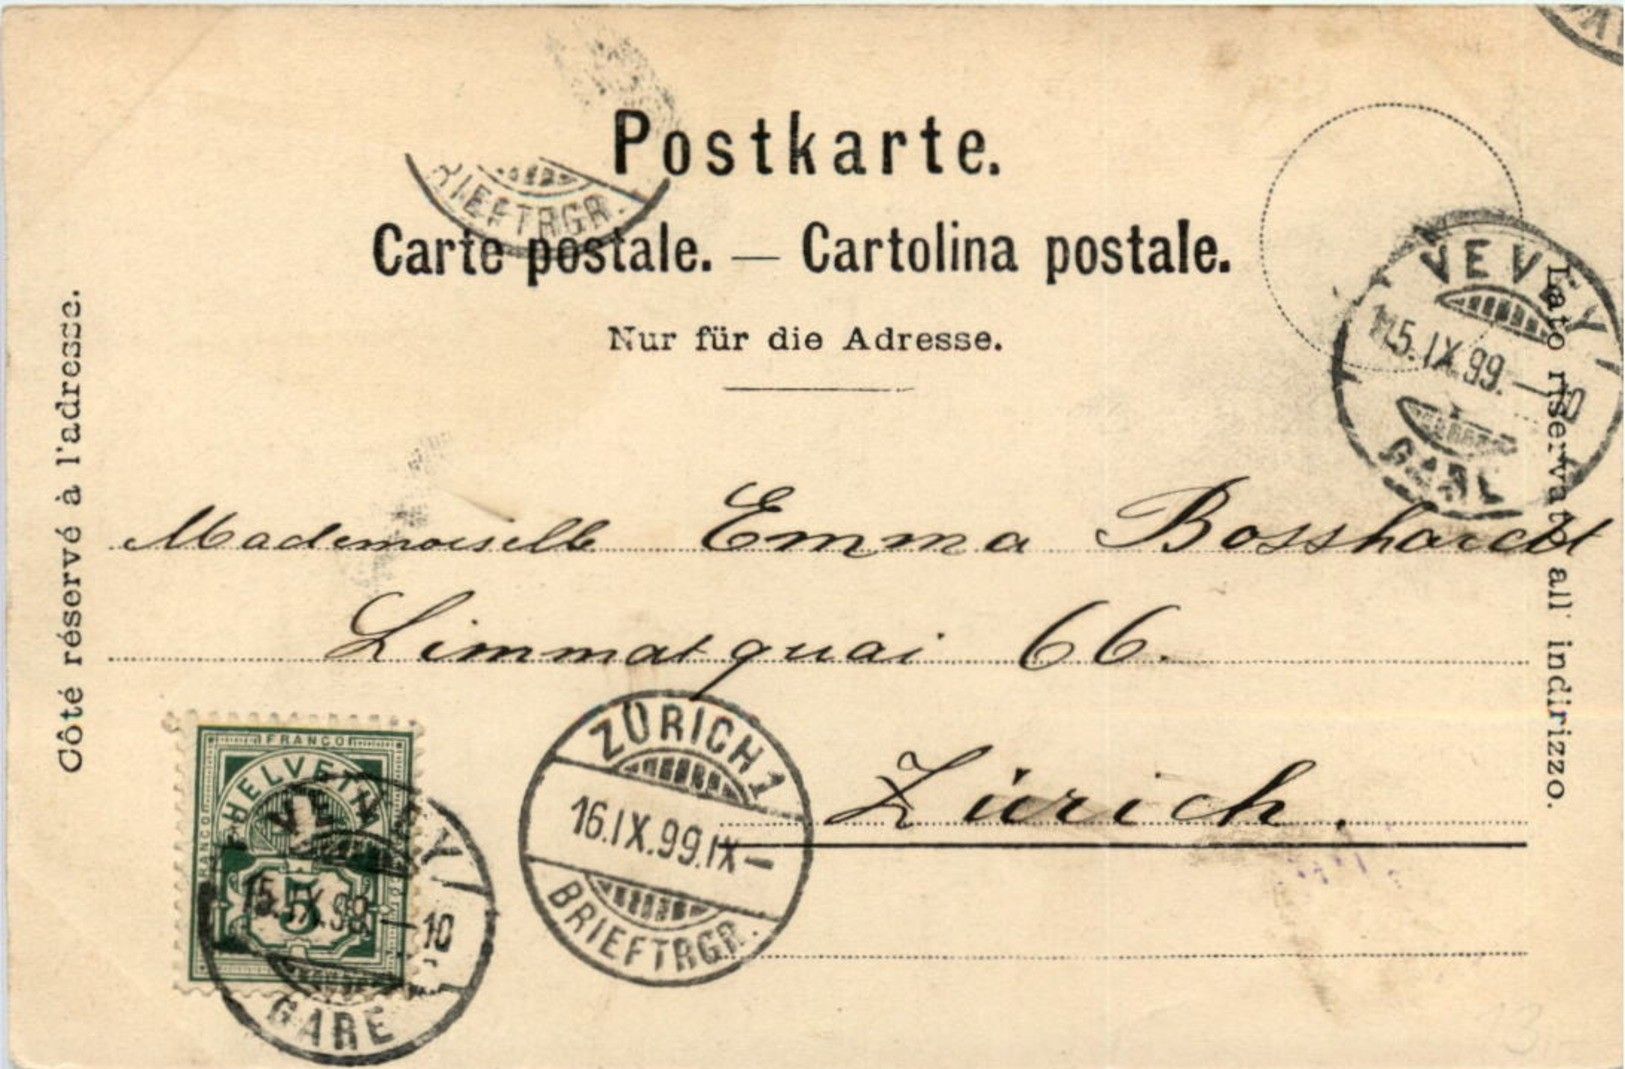 Postkarte.
RIEFTRGR.
Carte postale. — Cartolina postale.
Nur für die Adresse.
Côté réservé à l'adresse.
Lato riservato all' indirizzo.
VEVEY
15.IX.99.—10
GARE
Mademoiselle Emma Bosshardt
Limmatquai 66.
Zürich.
FRANCO
HELVETIA
FRANCO
5
VEVEY
15.IX.99.—10
GARE
ZÜRICH 1
16.IX.99.IX—
BRIEFTRGR.
13.-